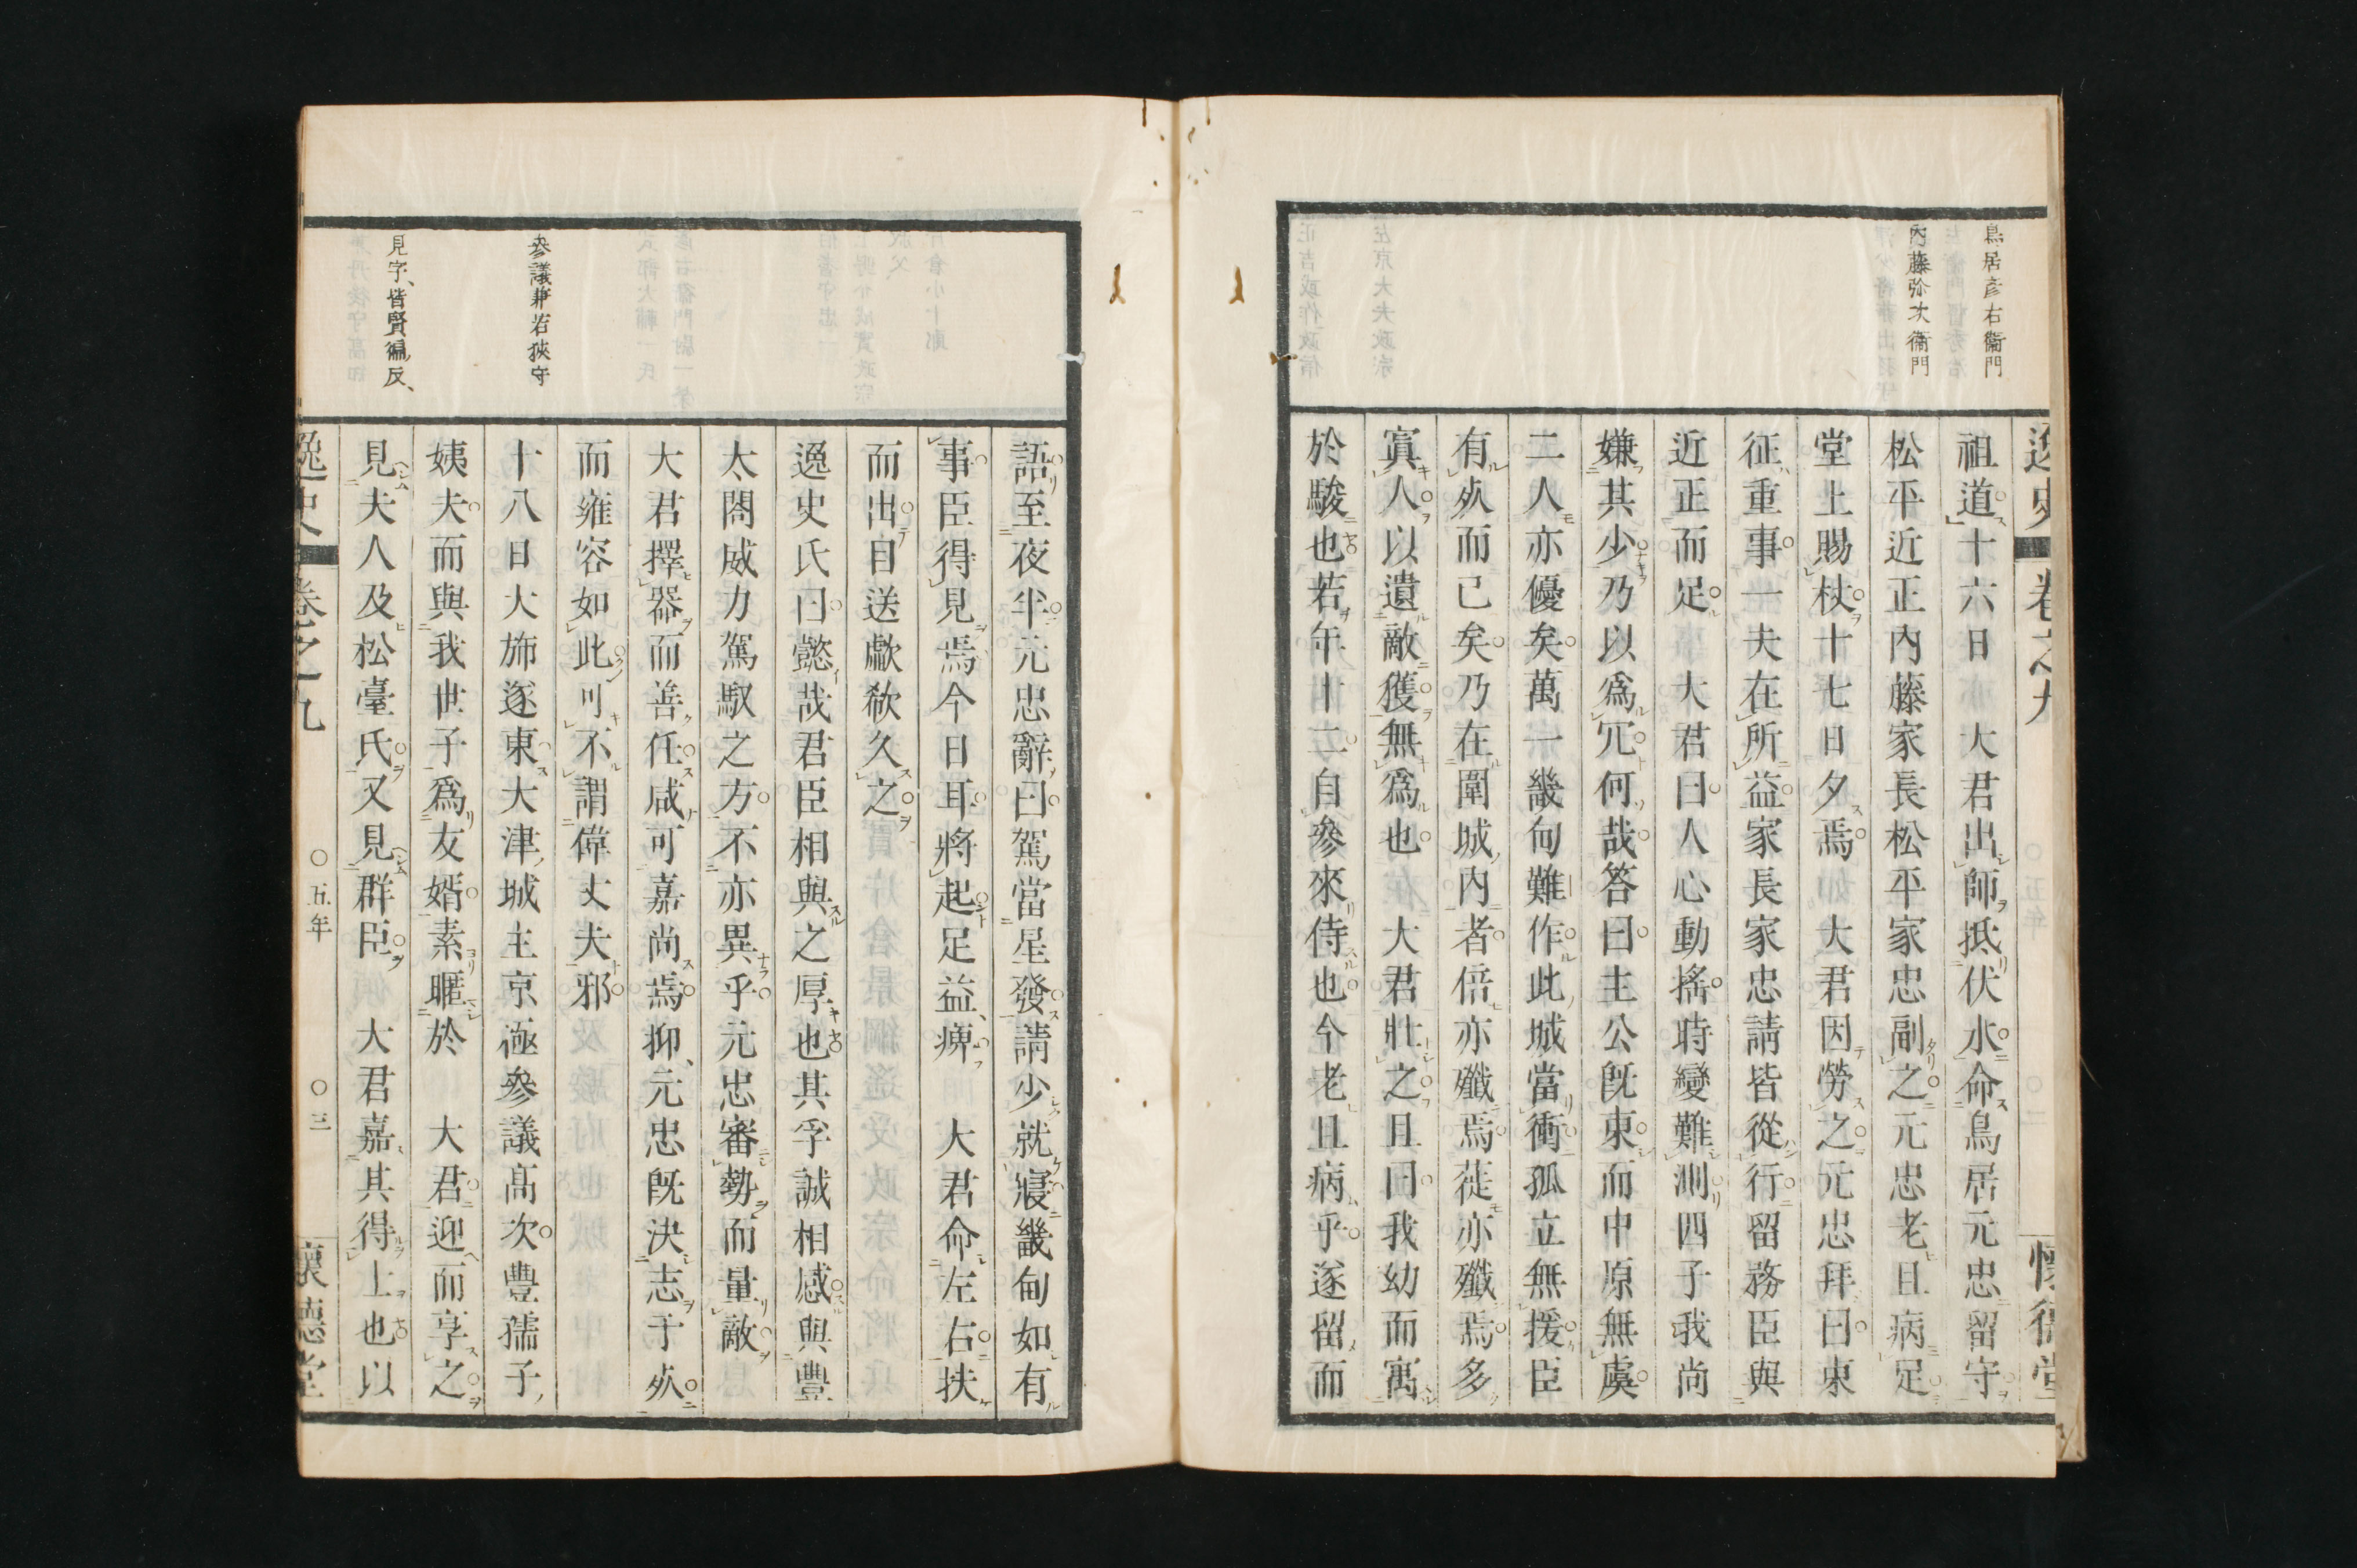 鳥居彦右衞門
內藤弥次衞門
祖道十六日　大君出師抵伏水命鳥居元忠留守
松平近正內藤家長松平家忠副之元忠老且病足
堂上賜杖十七日夕焉　大君因勞之元忠拜曰東
征重事一夫在所益家長家忠請皆從行留務臣與
近正而足　大君曰人心動搖時變難測四子我尚
嫌其少乃以爲冗何哉答曰主公既東而中原無虞
二人亦優矣萬一畿甸難作此城當衝孤立無援臣
有㱙而已矣乃在圍城內者倍亦殲焉蓰亦殲焉多
寘人以遺敵獲無爲也　大君壯之且曰我幼而寓
於駿也若年十二自參來侍也今老且病乎遂留而
語至夜半元忠辭曰駕當星發請少就寢畿甸如有
事臣得見焉今日耳將起足益痺　大君命左右扶
而出目送歔欷久之
逸史氏曰懿哉君臣相與之厚也其孚誠相感與豐
太閤威力駕馭之方不亦異乎元忠審勢而量敵
大君擇器而善任咸可嘉尚焉抑元忠既決志于㱙
而雍容如此可不謂偉丈夫邪
十八日大斾遂東大津城主京極參議高次豊孺子
姨夫而與我世子爲友婿素暱於　大君迎而享之
見夫人及松臺氏又見群臣　大君嘉其得上也以
參議兼若狹守
見字、皆賢徧反、
逸史
卷之九
五年
三
懷德堂